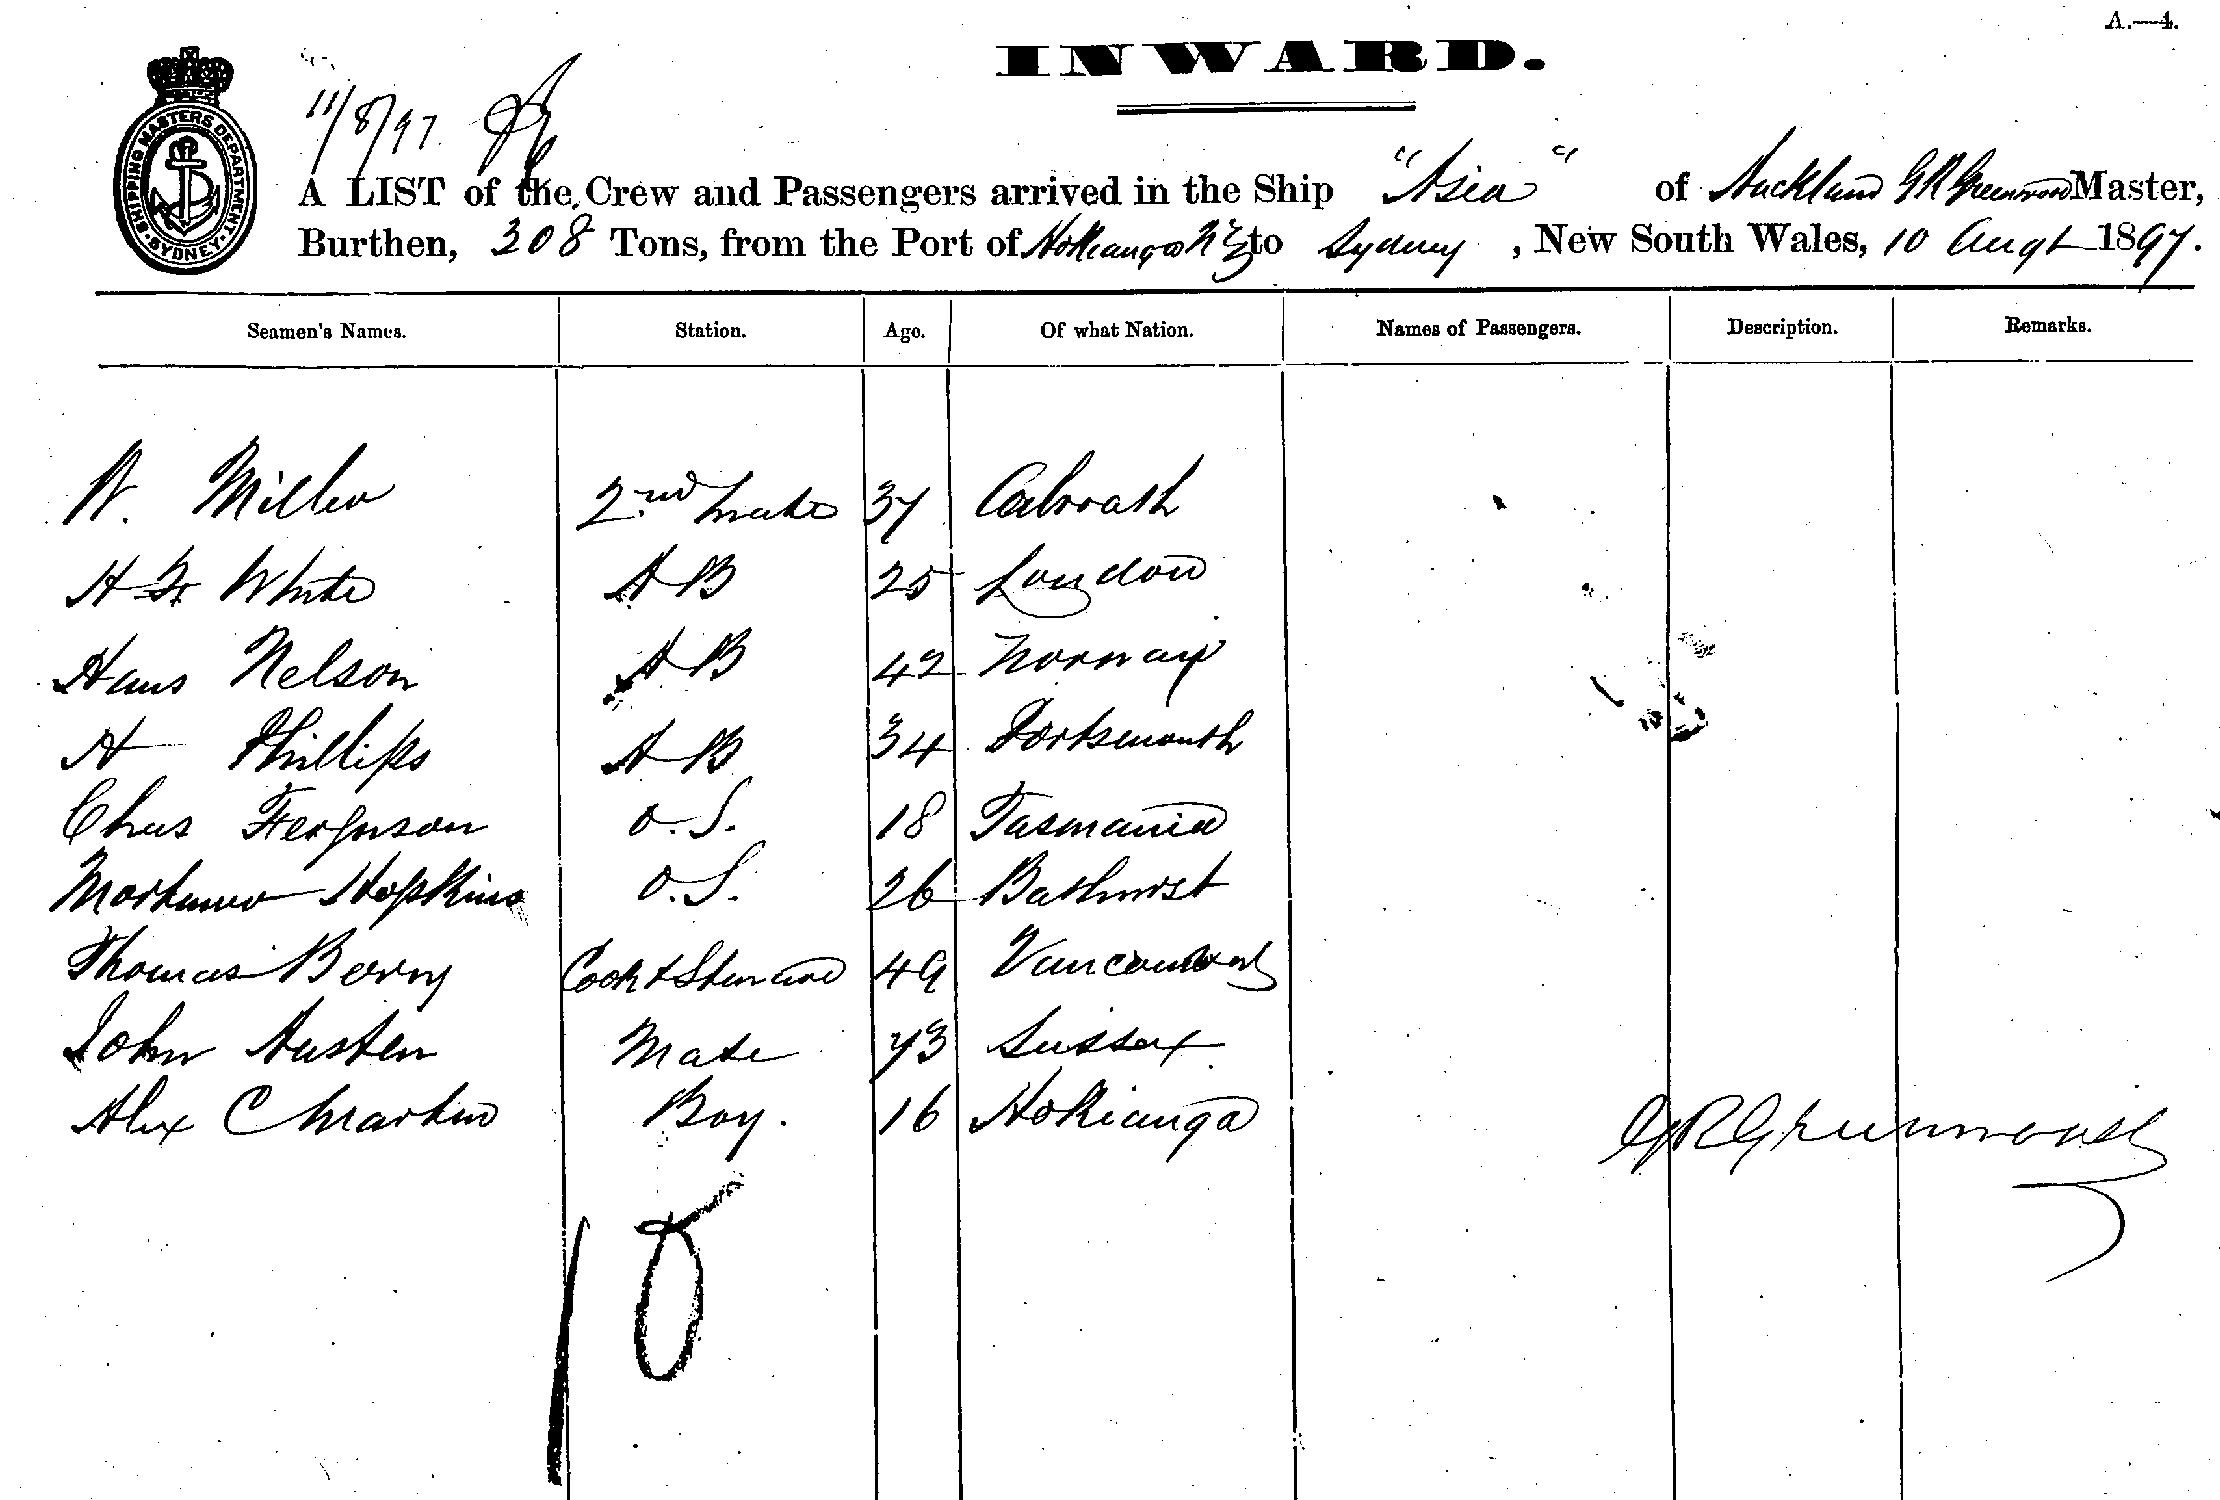 A.—4.
INWARD.
SHIPPING MASTERS DEPARTMENT
SYDNEY
11/8/97
A LIST of the Crew and Passengers arrived in the Ship "Asia" of Auckland G R Greenwood Master,
Burthen, 308 Tons, from the Port of Hokianga N Z to Sydney, New South Wales, 10 Augt 1897.
Seamen's Names. Station. Age. Of what Nation. Names of Passengers. Description. Remarks.
W. Miller 2nd Mate 37
H F White A B 25 London
Hans Nelson A B 42 Norway
H Phillips A B 34 Portsmouth
Chas Ferguson O.S. 18 Tasmania
Mortimer Hopkins O.S. 26 Bathurst
Thomas Berry Cook & Steward 49 Vancouver
John Austen Mate 73 Sussex
Alex C Martin Boy. 16 Hokianga
G R Greenwood
10